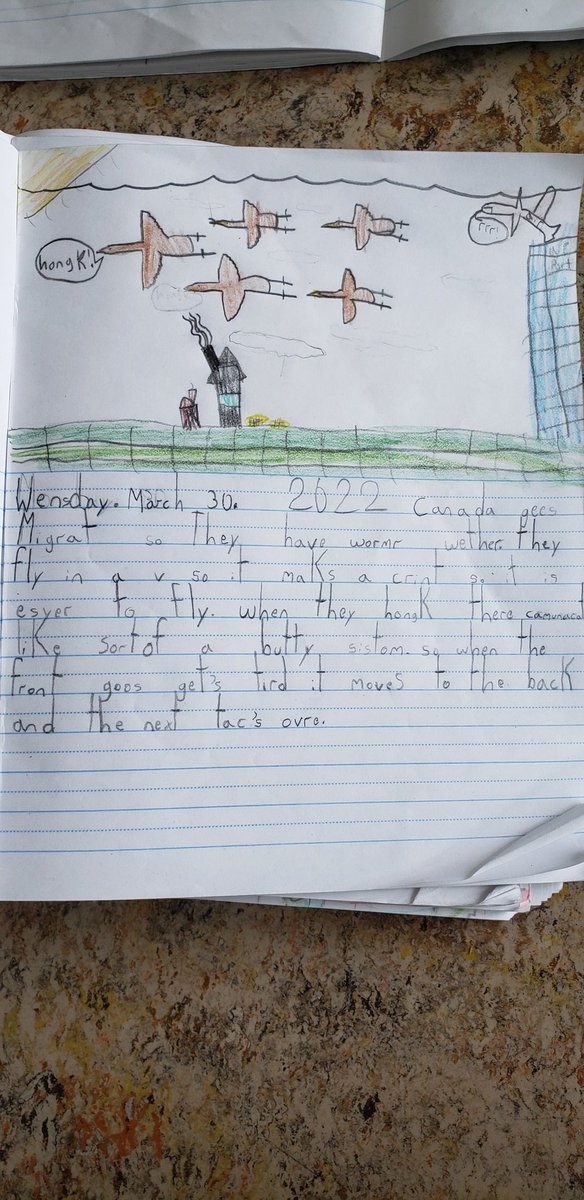 hongk!
rrr!
Wensday. March 30. 2022 Canada gees
Migrat so They have wormr wether. They
fly in a v so it maks a crint so it is
esyer to fly. when they hongk there camunacat
like sortof a butty sistom. so when the
front goos get's tird it moves to the back
and the next tac's ovre.